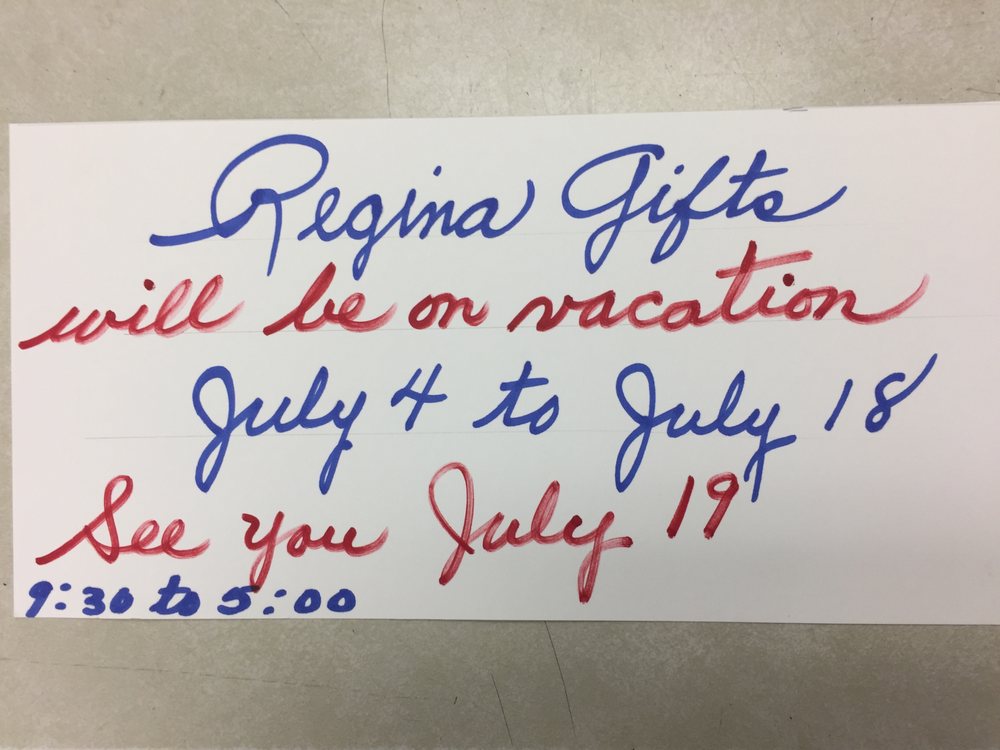 Regina Gifts
will be on vacation
July 4 to July 18
See you July 19
9:30 to 5:00